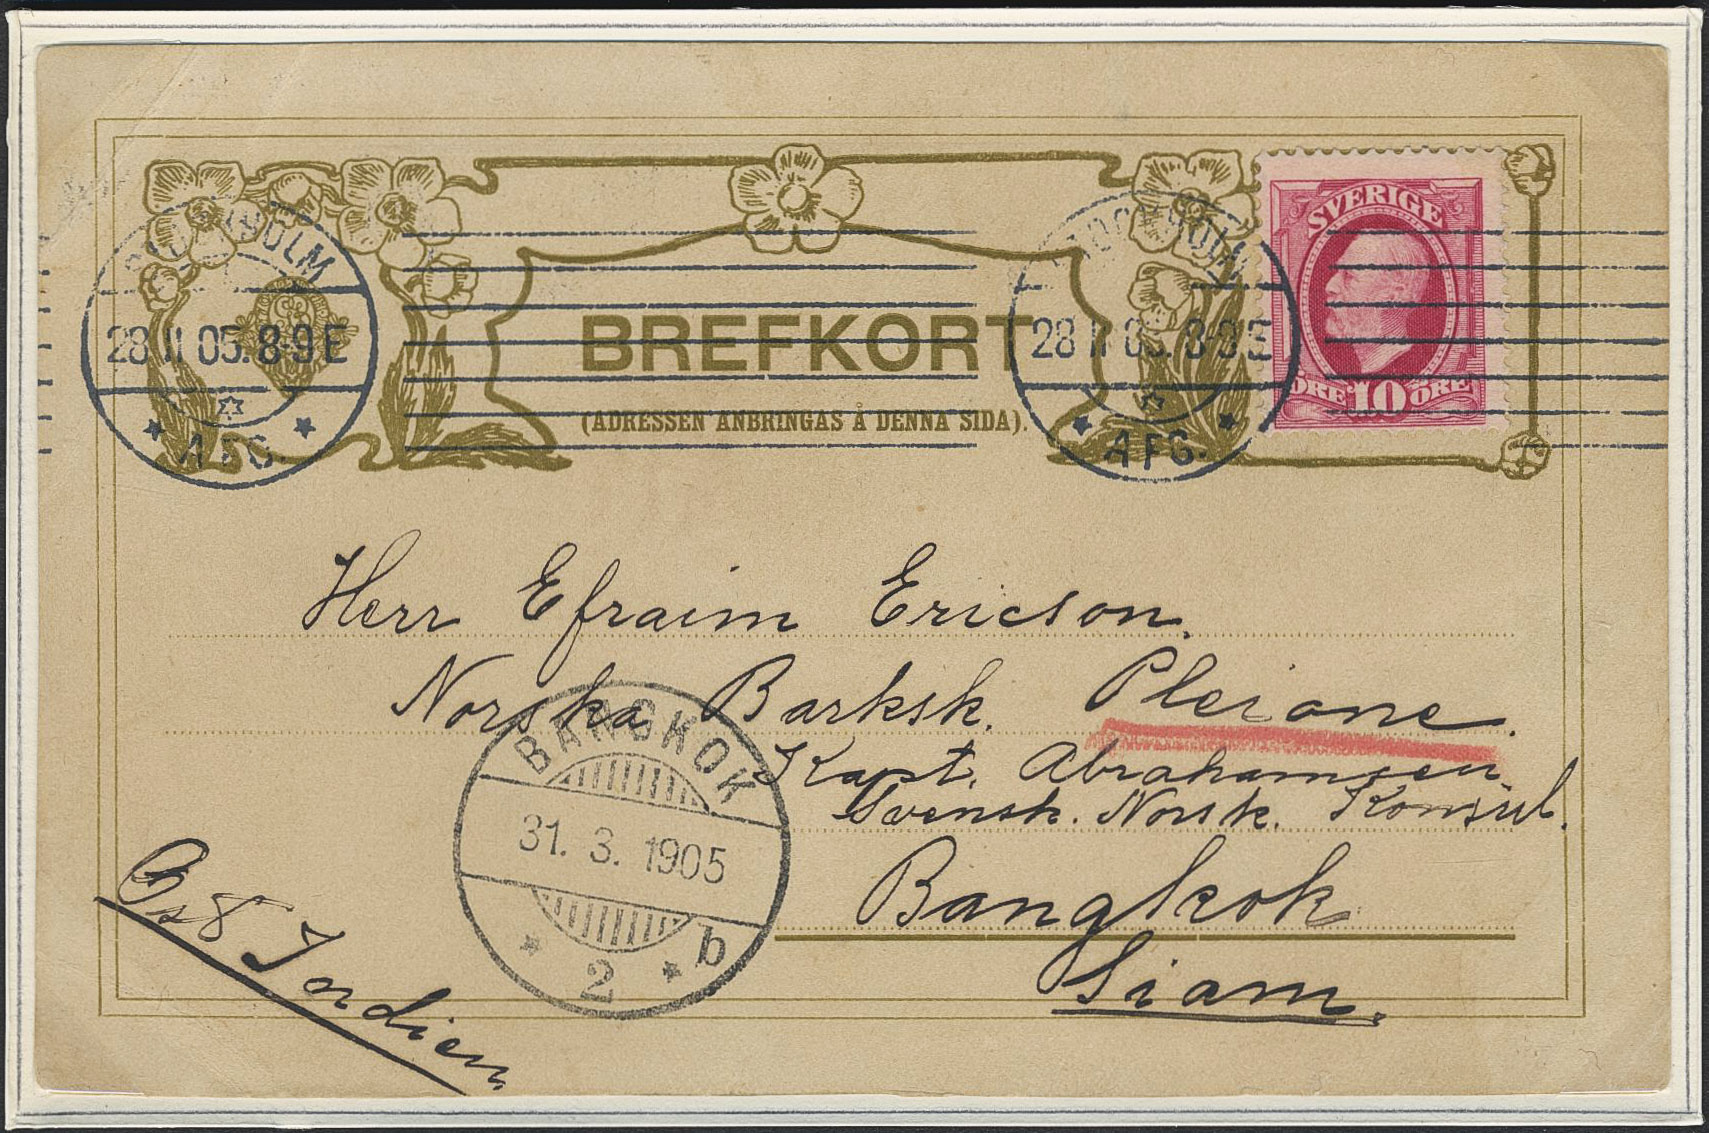 STOCKHOLM
28 II 05. 8-9 E
AFG.
STOCKHOLM
28 II 05. 8-9 E
AFG.
SVERIGE
ÖRE 10 ÖRE
BREFKORT
(ADRESSEN ANBRINGAS Å DENNA SIDA).
Herr Efraim Ericson.
Norska Barksk. Pleione.
Kapt. Abrahamsen
Svensk. Norsk. Konsul.
Bangkok
Siam.
Ost Indien
BANGKOK
31. 3. 1905
2 b